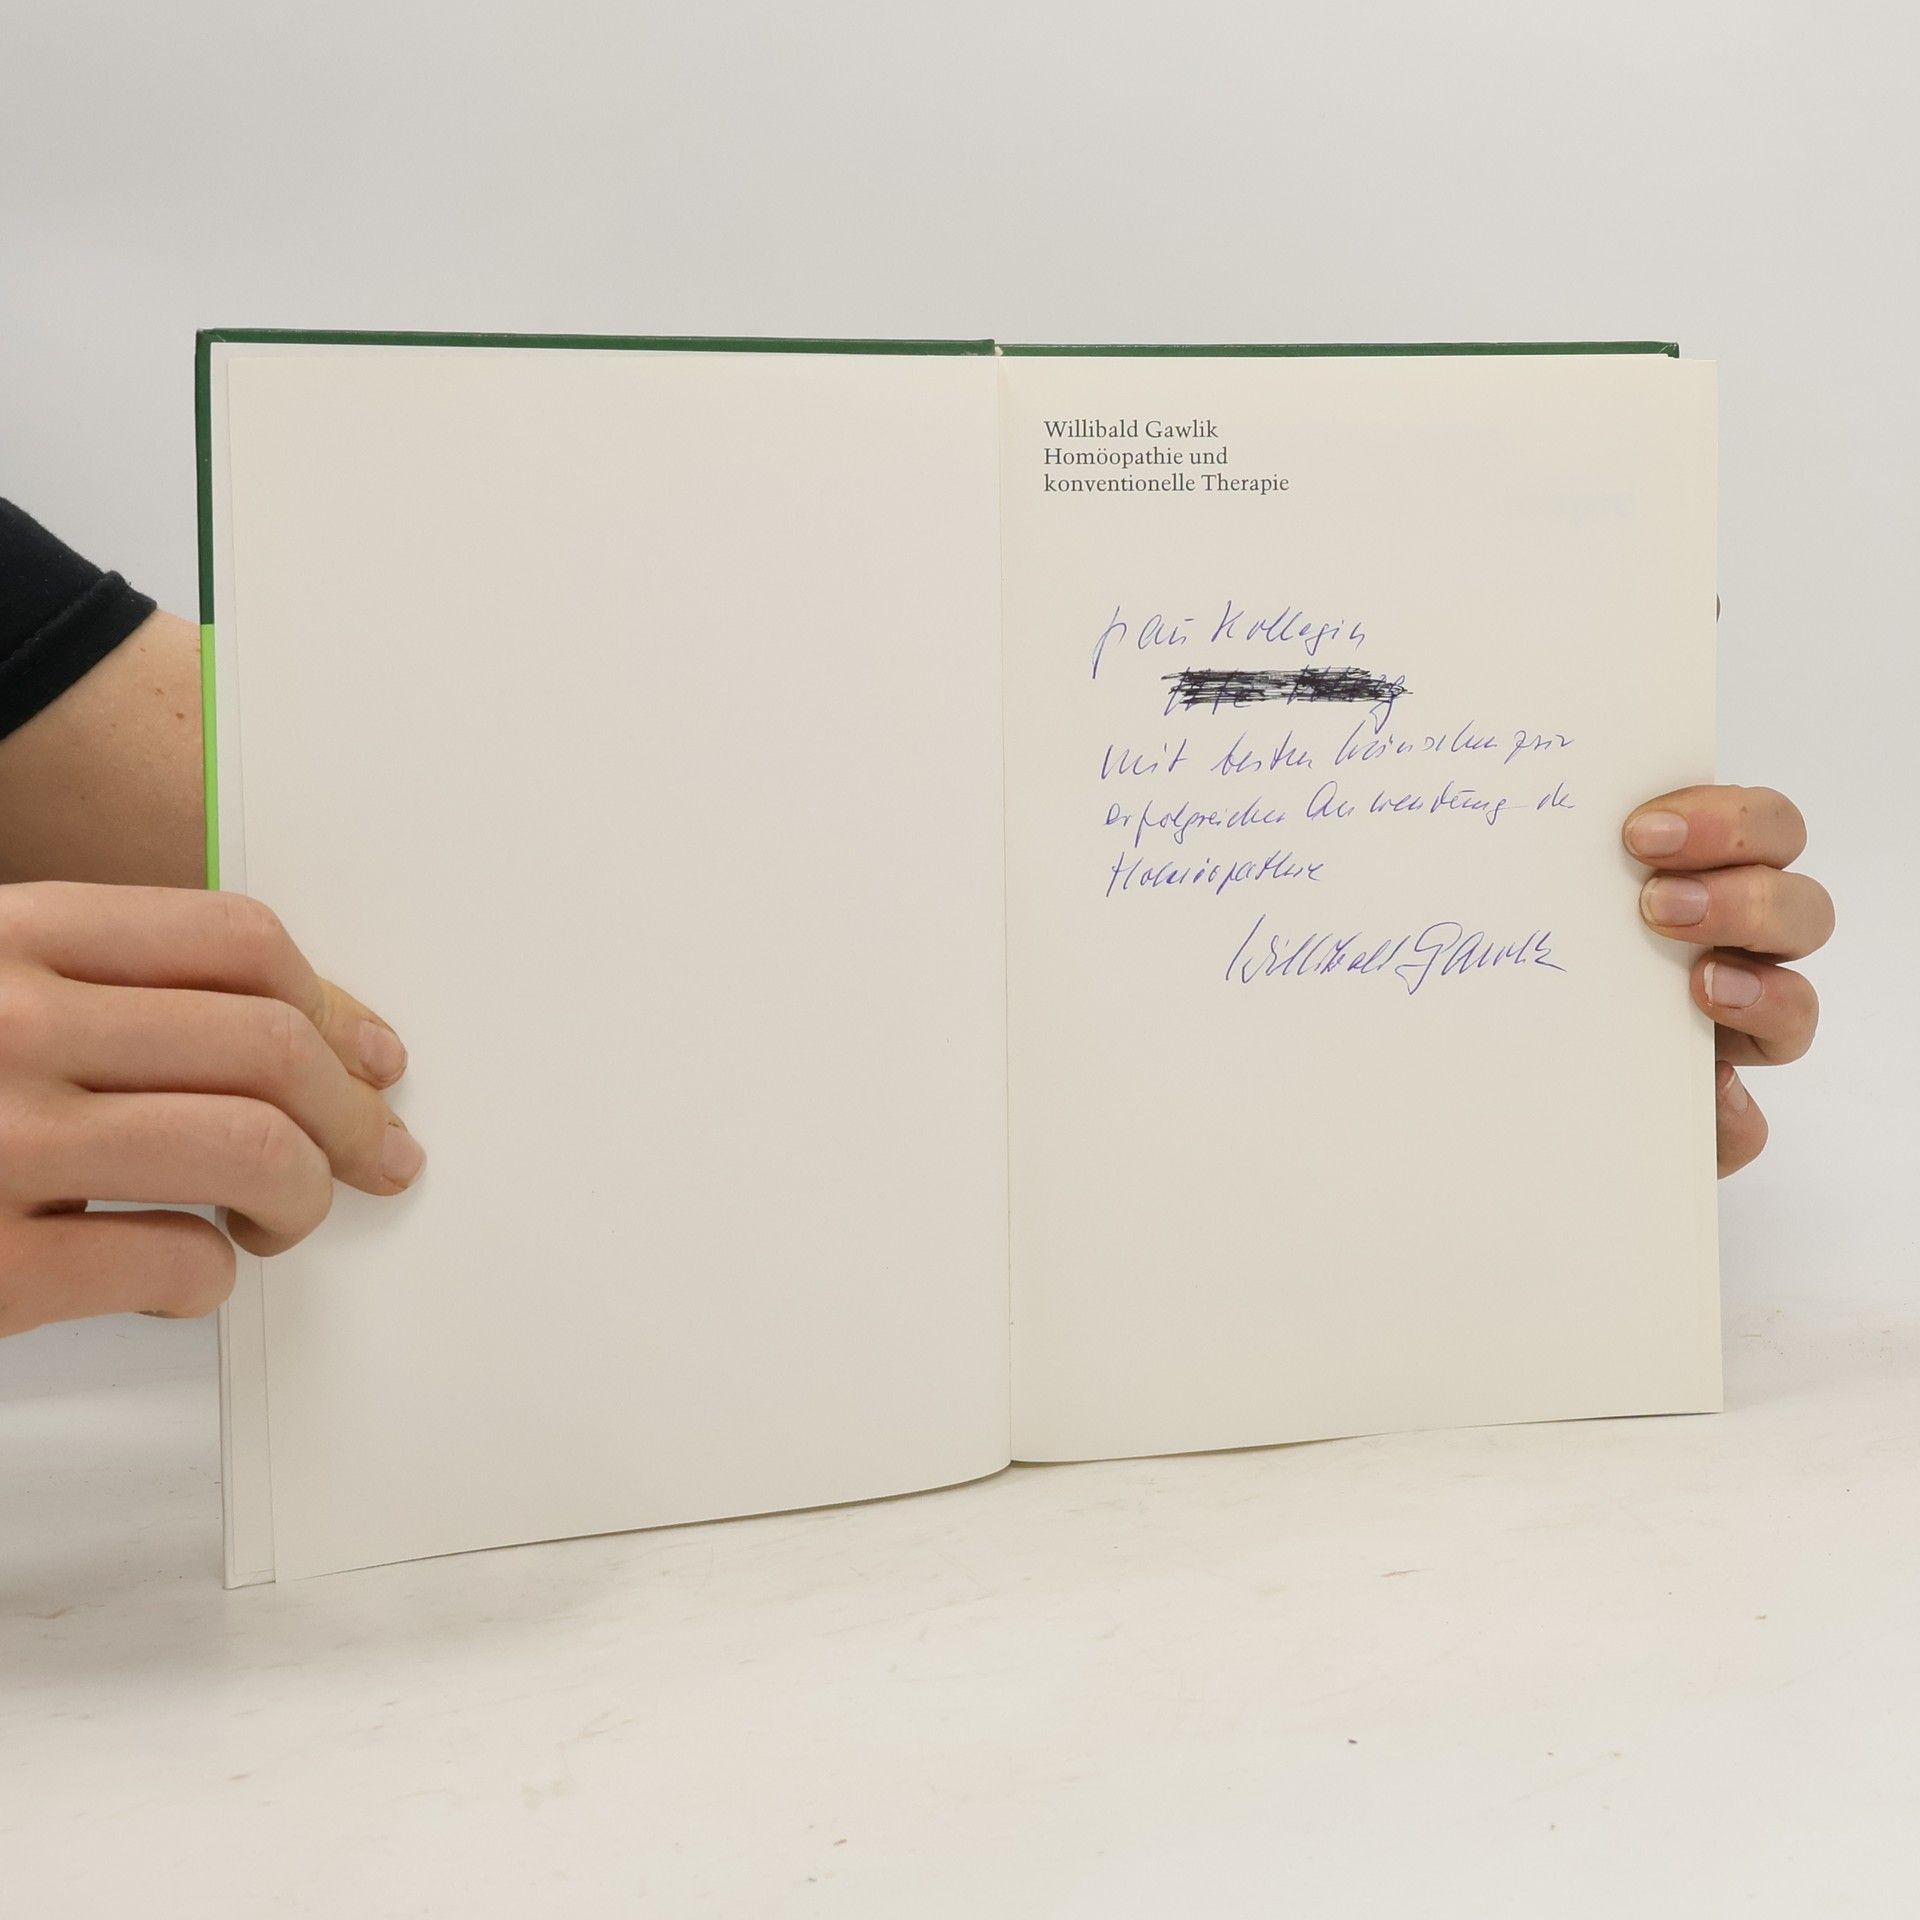 Willibald Gawlik
Homöopathie und
konventionelle Therapie
Frau Kollegin
mit besten Wünschen zur
erfolgreichen Anwendung der
Homöopathie
Willibald Gawlik